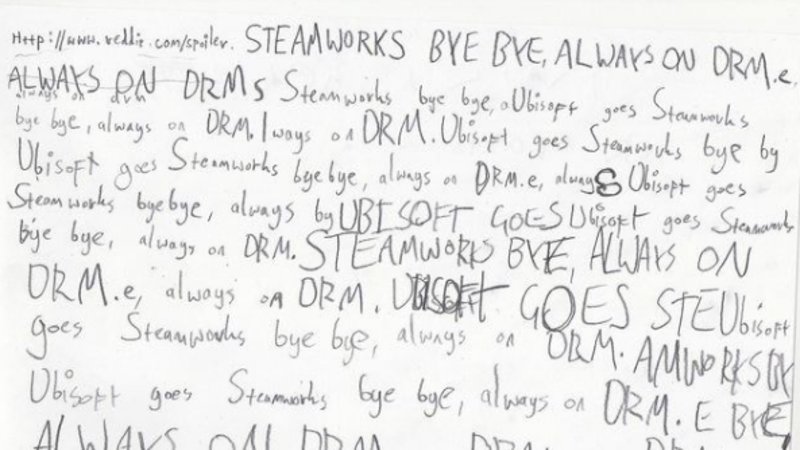 Http://www.reddit.com/spoiler. STEAMWORKS BYE BYE, ALWAYS ON DRM.e.
ALWAYS ON DRMs Steamworks bye bye, aUbisoft goes Steamworks
always on drm
bye bye, always on DRM.lways on DRM.Ubisoft goes Steamworks bye by
Ubisoft goes Steamworks bye bye, always on DRM.e, always Ubisoft goes
Steamworks bye bye, always by UBISOFT GOES Ubisoft goes Steamworks
bye bye, always on DRM. STEAMWORKS BYE, ALWAYS ON
DRM.e, always on DRM. UBISOFT GOES STEUbisoft
goes Steamworks bye bye, always on DRM. AMWORKS BY
Ubisoft goes Steamworks bye bye, always on DRM. E BYE,
ALWAYS ON DRM DRM DRM